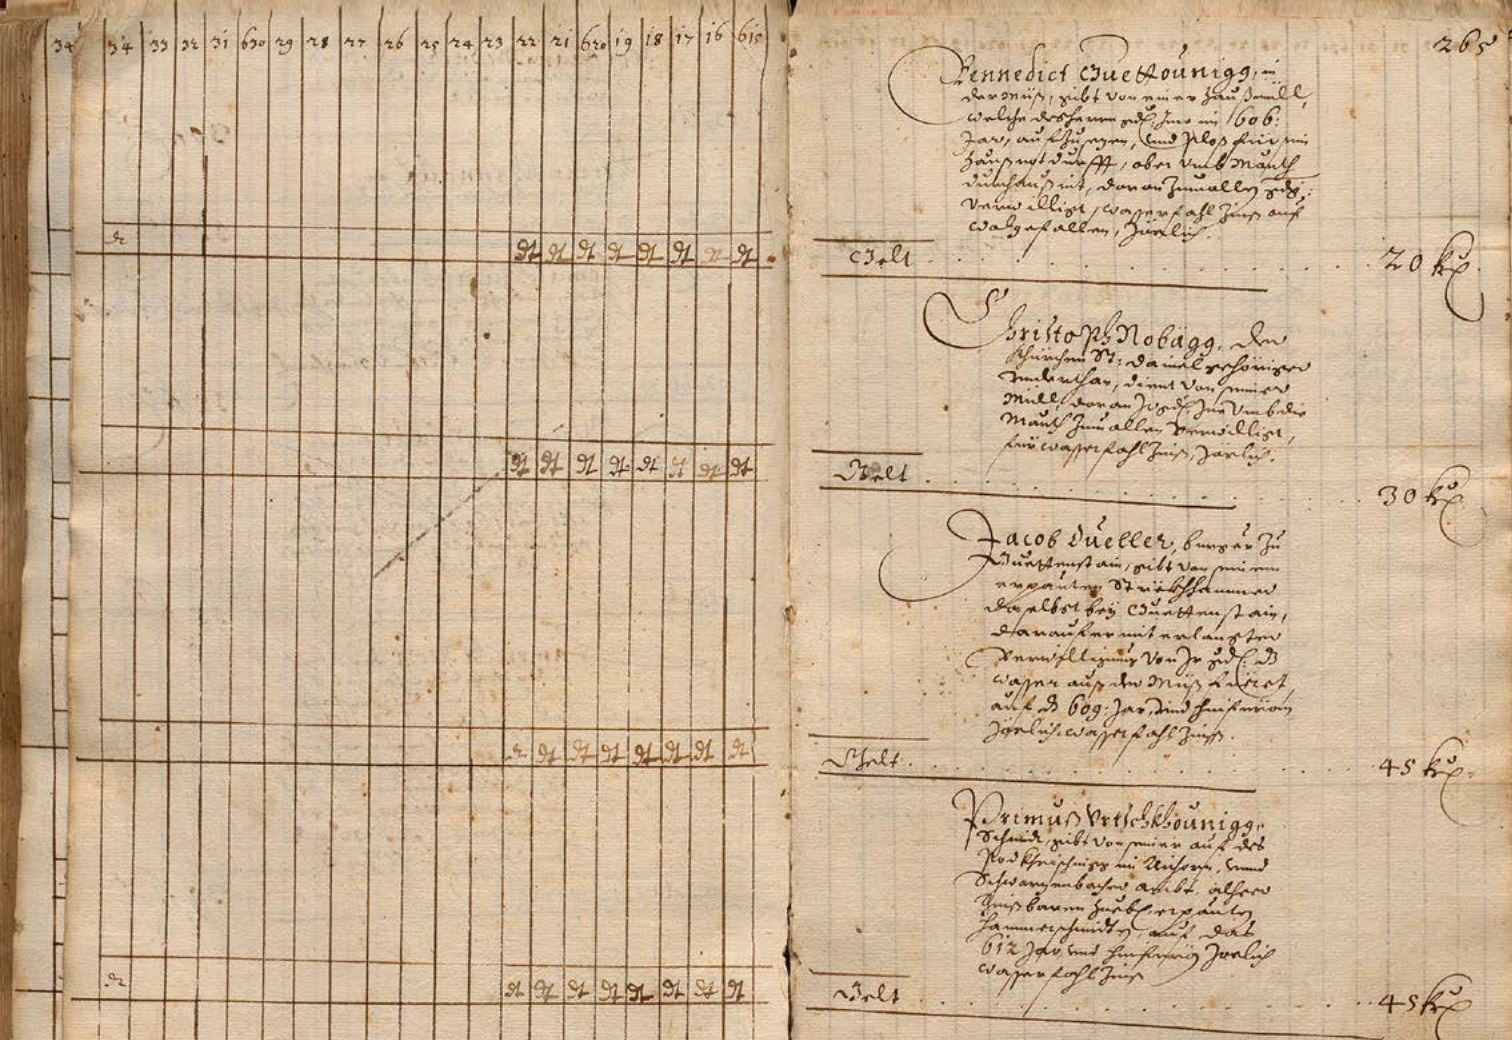 34 34 33 32 31 630 29 28 27 26 25 24 23 22 21 620 19 18 17 16 615
dt dt dt dt dt dt dt dt
dt dt dt dt dt dt dt dt
dt dt dt dt dt dt dt
dt dt dt dt dt dt dt dt
265
Bennedict Guettounigg, in
der Müß, gibt von einer Haußmüll,
welche 1606:
Jar, auf Zusezen, und ploß für sein
Haußnotdurfft, aber umb Mauth
verwilligt, wasserfahl Zinß auf
wolgefallen, Järlich.
Gelt 20 kr
Christoph Nobägg, der
Khürchen St: Daniel gehöriger
Underthan, dient von seiner
Müll, daran umb die
Mauth Zumallen verwilligt,
für wasserfahl Zinß, Järlich.
Gelt 30 kr
Jacob Dueller, burger Zu
Guettenstain, gibt von seinem
erpauten Strekhhammer
daselbst bey Guettenstain,
darauf er mit erlangter
Verwilligung von Jr
wasser auß der Müß füeret,
auf 609: Jar, und hinfüran
Järlich wasserfahl Zinß.
Gelt 45 kr
Primuß Urtschkhounigg,
Schmidt, gibt von seiner auf des
im Aichorn, und
Schwarzenbacher Ambt, alher
Zinßbaren Hueb, erpauten
Hammerschmidten, auf das
612 Jar, und hinfüran Järlich
wasserfahl Zinß
Gelt 45 kr